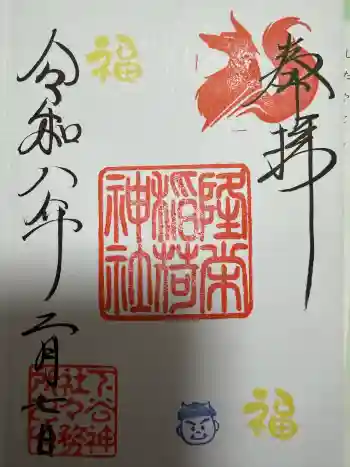 奉拝
隆栄
稲荷
神社
令和八年 二月七日
福
福
下谷神
社々務